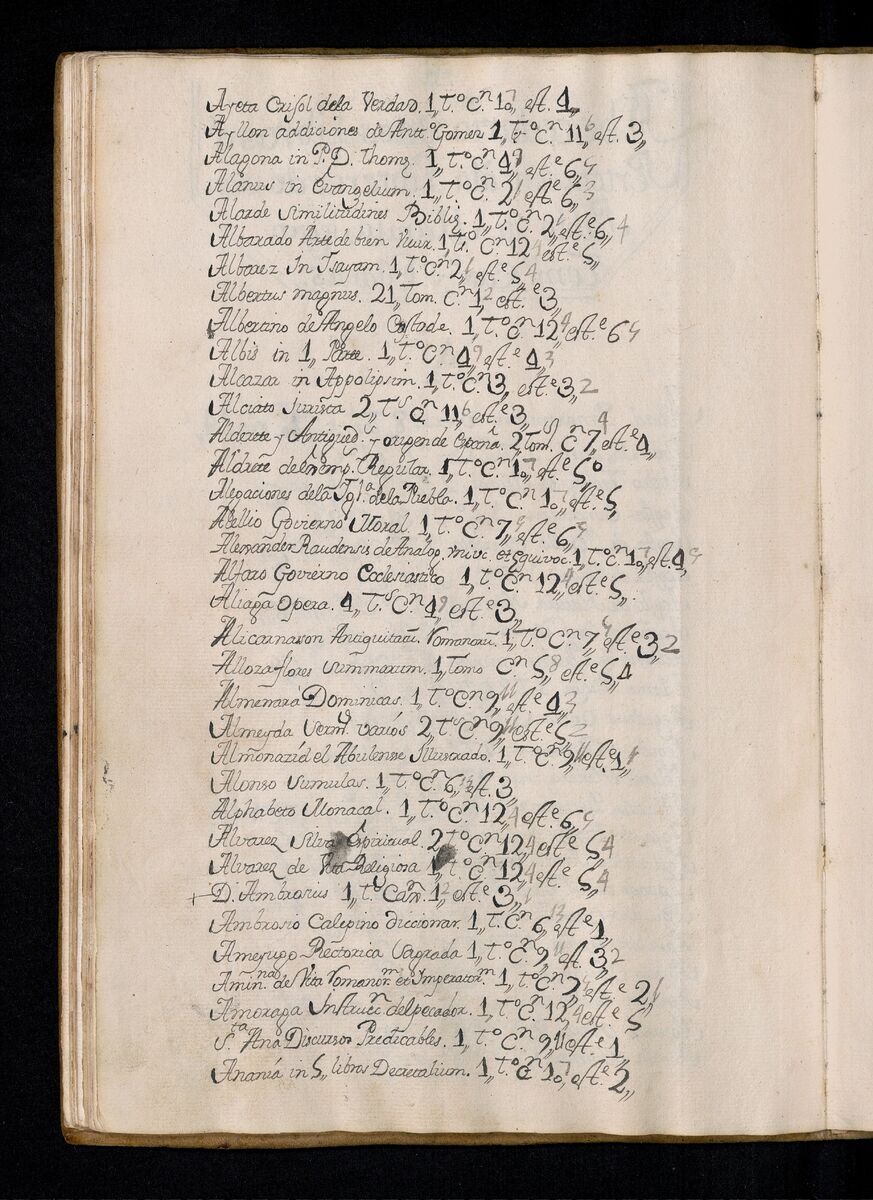 Ayeta Crisol dela Verdad. 1,, t.º C.n 10,, est. 1,,
Ayllon addiciones de Antt.º Gomez 1,, t.º C.n 11,, 6 est. 3,,
Alagona in P. D. Thom. 1,, t.º C.n 4,, 9 est.e 6,, 4
Alanus in Evangelium. 1,, t.º C.n 2,, 1 est.e 6,, 3
Alarde Similitudines Bibliȩ. 1,, t.º C.n 2,, 1 est.e 6,, 4
Albarado Arte de bien Vivir. 1,, t.º C.n 12,, 4 est.e 5,,
Albarez In Isayam. 1,, t.º C.n 2,, 1 est.e 5,, 4
Albertus magnus. 21,, tom. C.n 1,, 2 est.e 3,,
Albertino de Angelo Custode. 1,, t.º C.n 12,, 4 est.e 6 4
Albis in 1,, Parte. 1,, t.º C.n 4,, 9 est.e 4,, 3
Alcazar in Appolipsim. 1,, t.º C.n 3,, est.e 3,, 2
Alciato Jurista 2,, t.s C.n 11,, 6 est.e 3,,
Alderete y Antigued.s y origen de España. 2,, tom.s C.n 7,, 4 est.e 4,,
Aldrete de Regular. 1,, t.º C.n 10,, 7 est.e 5,,
Alegaciones dela Igl.a dela Puebla. 1,, t.º C.n 10,, 7 est.e 5,,
Alellio Govierno Moral. 1,, t.º C.n 7,, 4 est.e 6,,
Alexander Raudensis de Analog. univc. et Equivoc. 1,, t.º C.n 10,, 7 est.e 4,, 4
Alfaro Govierno Ecclesiastico 1,, t.º C.n 12,, 4 est.e 5,,
Aliaga Opera. 4,, t.s C.n 4,, 9 est.e 3,,
Alicarnason Antiquitatū. Romanorū. 1,, t.º C.n 7,, 4 est.e 3,, 2
Alloza flores Summarum. 1,, tomo C.n 5,, 8 est.e 5,, 4
Almenara Dominicas. 1,, t.º C.n 9,, 11 est.e 4,, 3
Almeyda Serm.s varios 2,, t.s C.n 9,, 11 est.e 5 2
Almonazid el Abulense Illustrado. 1,, t.º C.n 9,, 11 est.e 1,,
Alonso Sumulas. 1,, t.º C.n 6,, 13 est. 3,,
Alphabeto Monacal. 1,, t.º C.n 12,, 4 est.e 6,, 4
Alvarez Silva Espiritual. 2,, t.º C.n 12,, 4 est.e 5,, 4
Alvarez de Vita Religiosa 1,, t.º C.n 12,, 4 est.e 5,, 4
D. Ambrosius 1,, t.º Can. 1,, 2 est.e 3,, 1
Ambrosio Calepino diccionar. 1,, t. C.n 6,, 13 est.e 1,,
Amexugo Rectorica Sagrada 1,, t.º C.n 9,, 11 est. 3,, 2
de Vita Romanor.m et Imperator.m 1,, t.º C.n 7,, 4 est.e 2,, 1
Amoraga Instrucc.n del pecador. 1,, t.º C.n 12,, 4 est.e 5,,
S.ta Ana Discursos Predicables. 1,, t.º C.n 9,, 11 est.e 1,,
Ananiá in 5,, libros Decretalium. 1,, t.º C.n 10,, 7 est.e 2,,